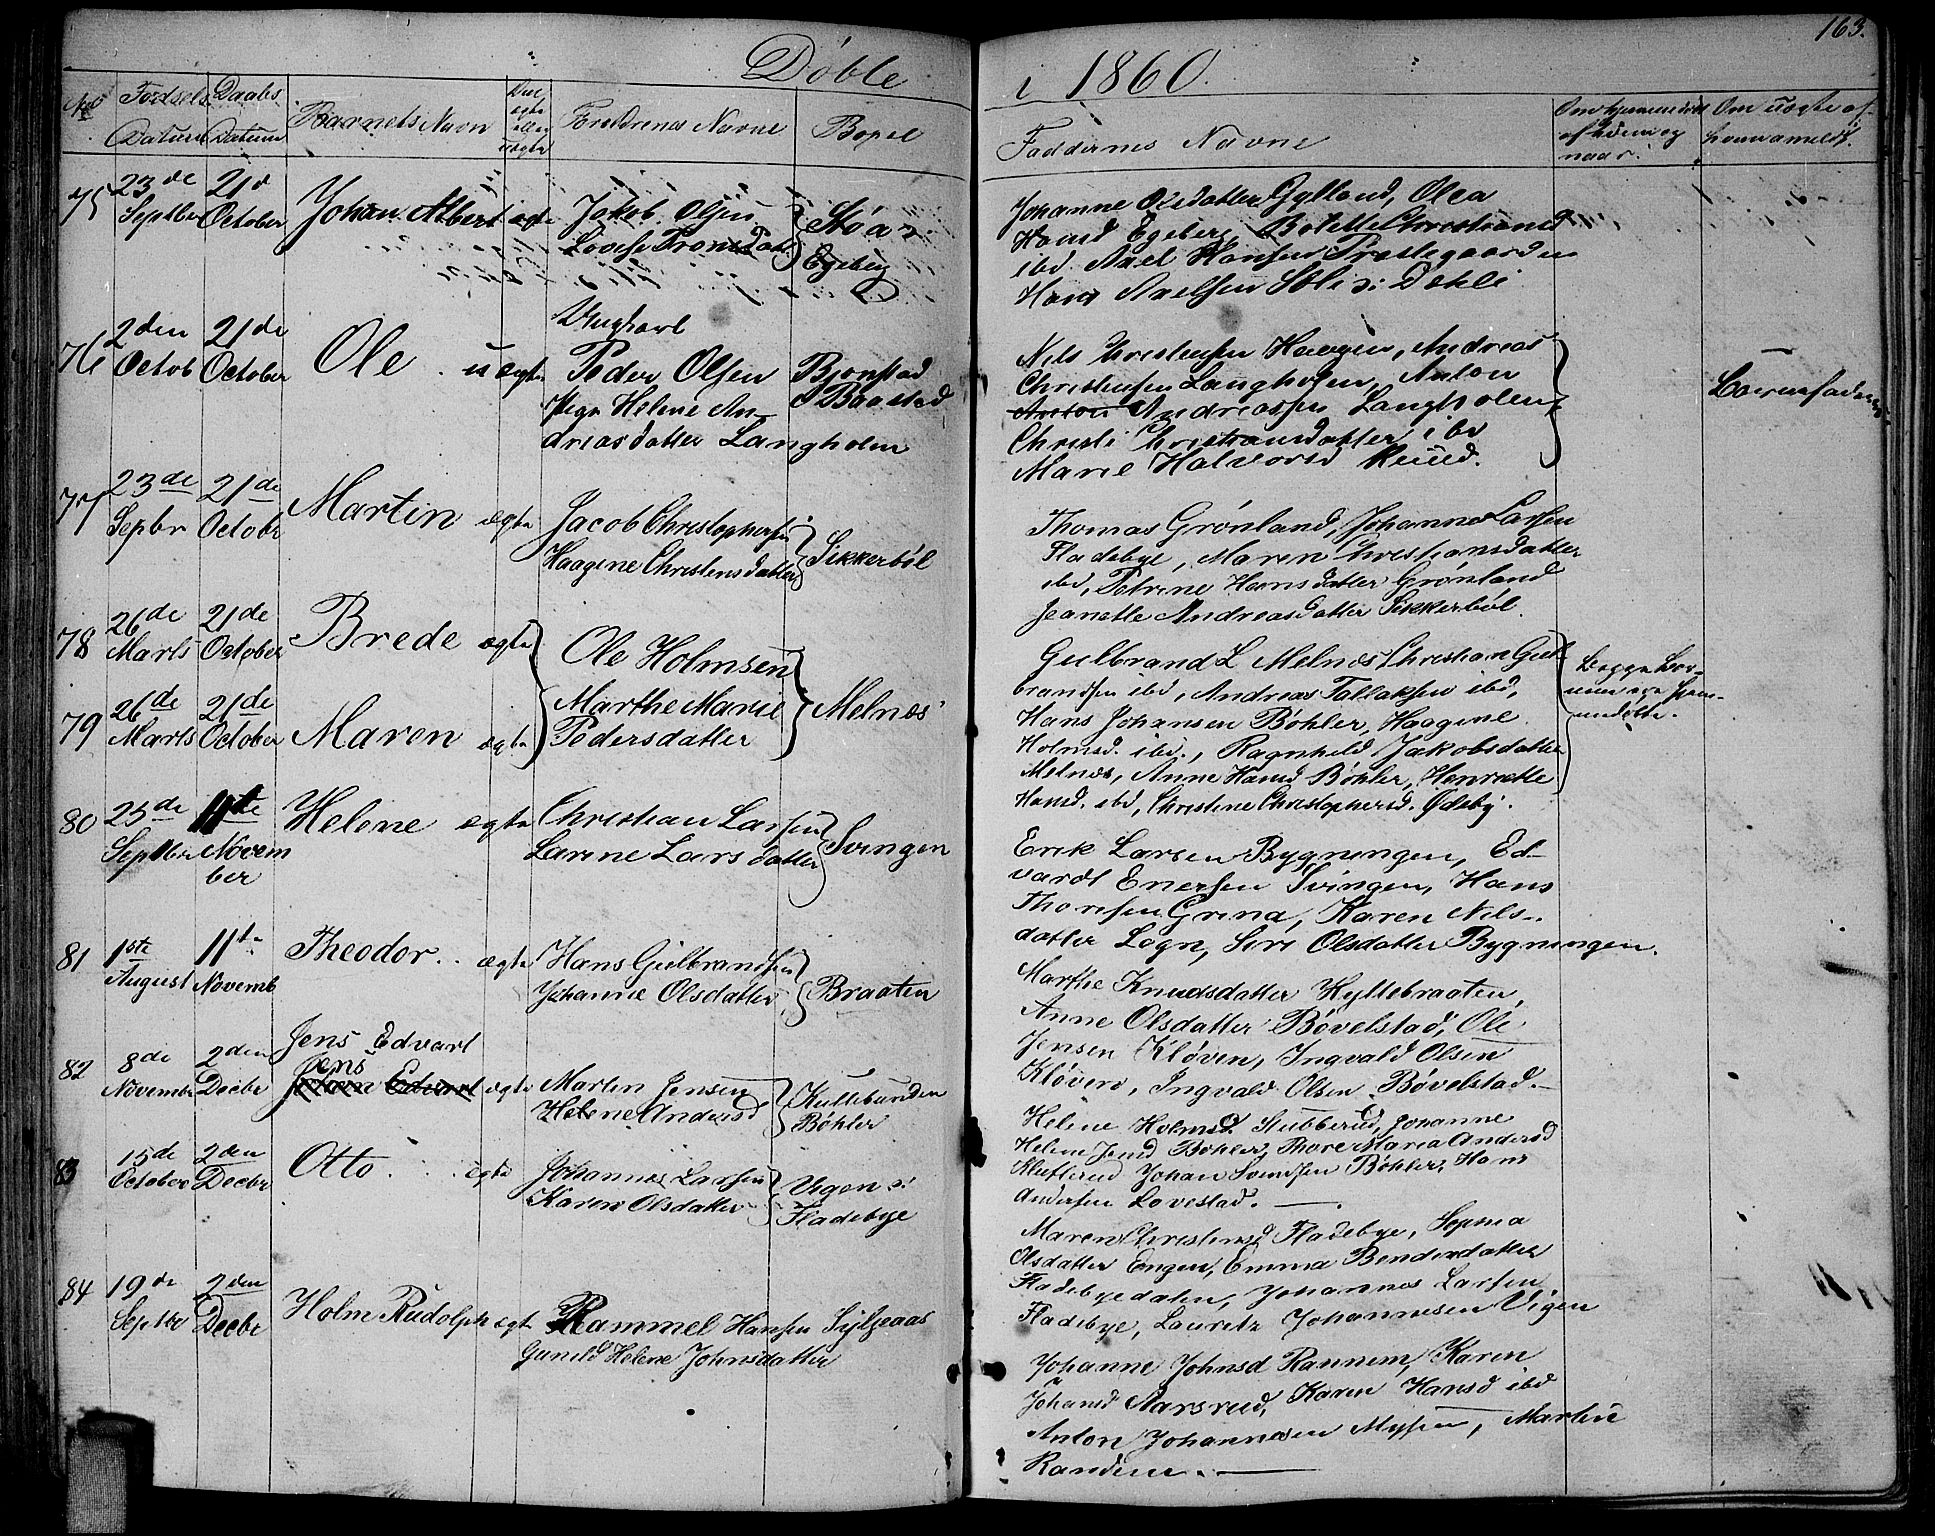 163.
Döbte i 1860.
No
Fødsels Datum
Daabs Datum
Barnets Navn
Om ægte eller uægte
Forældrenes Navne
Bopel
Faddernes Navne
Om hjemmedøbt af hvem og naar.
Om uægte af hvem anmeldt.
75 23de Septbr 21d October Johan Albert ægte
Jakob Olsen
Lovise Tronsdatt
Egeberg
Johanne Olsdatter Gylland, Olea
Hansd Egeberg, Bolette Christiansd
ibd. Axel Hansen Præstegaarden
Hans Axelsen Dæhli
76 2den Octob 21de October Ole uægte
Ungkarl
Peder Olsen
Pige Helene An-
dreasdatter Langholen
Bjonstad
Baastad
Nels Christensen Haugen, Andreas
Christensen Langholen, Anton
Andreassen Langholen
Christi Christiansdatter ibd
Marie Halvorsd Ruud.
Barnefaderen
77 23de Sepbr 21de Octobr Martin ægte
Jacob Christophersen
Haagine Christensdatter
Sikkerböl
Thomas Grönland, Johannes Larsen
Fladebye, Maren Christiansdatter
ibd, Petrine Hansdatter Grönland
Jeanette Andreasdatter Sikkerböl.
78 26de Marts 21de October Brede ægte
79 26de Marts 21de October Maren ægte
Ole Holmsen
Marthe Marie
Pedersdatter
Melnæs
Gulbrand L Melnæs Christian Gul-
brandsen ibd, Andreas Tollaksen ibd,
Hans Johansen Böhler, Haagine
Holmsd. ibd., Ragnhild Jakobsdatter
Melnæs, Anne Hansd Böhler, Henriette
Hansd. ibd, Christine Christophersd. Ødeby.
80 25de Septbr 11te Novem
ber
Helene ægte
Christian Larsen
Larine Larsdatter
Svingen
Erik Larsen Bygningen, Ed-
vardt Enersen Svingen, Hans
Thoresen Grina, Karen Nils-
datter Logn, Siri Olsdatter Bygningen.
81 1ste August 11te Novemb Theodor ægte
Hans Gulbrandsen
Johanne Olsdatter
Braaten
Marthe Knudsdatter Hyttebraaten,
Anne Olsdatter Bövelstad, Ole
Jensen Klöven, Ingvald Olsen
Klöven, Ingvald Olsen Bövelstad.
82 8de Novembr 2den Decbr Jens Edvart
Jens
ægte
Martin Jensen
Helene Andersd
Kullebunden
Böhler
Helene Holmsd. Stubberud, Johanne
Helene Jensd Böhler, Thore Maria Andersd
Johan Svendsen Böhler, Hans
Andersen Lovestad.
83 15de October 2den Decbr Otto ægte
Johannes Larsen
Karen Olsdatter
Vigen i
Fladebye
Maren Christensd Fladebye, Sophia
Olsdatter Engen, Emma Bendixdatter
Fladebyedalen, Johannes Larsen
Fladebye, Lauritz Johannesen Vigen
84 19de Septbr 2den Decbr Holm Rudolph ægte
Rammel Hansen
Gunild Helene Johnsdatter
Johanne Johnsd Rannem, Karen
Johansd Aarsrud, Karen Hansd ibd
Anton Johannesen Mysen, Martin
Randem.